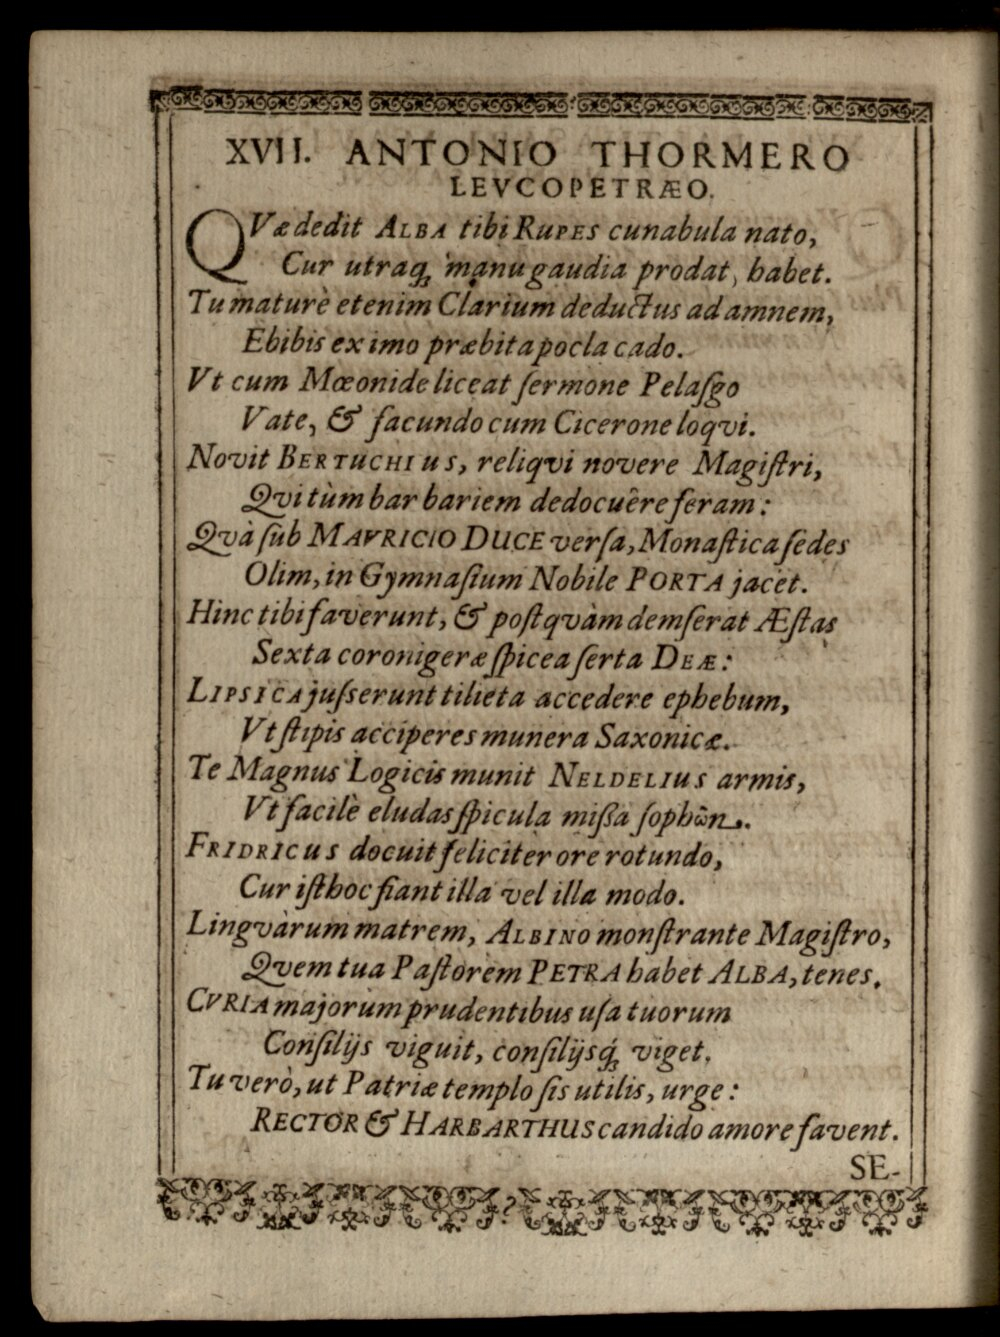 XVII. ANTONIO THORMERO
LEVCOPETRÆO.
QVæ dedit ALBA tibi RUPES cunabula nato,
Cur utraq́; manu gaudia prodat, habet.
Tu maturè etenim Clarium deductus ad amnem,
Ebibis ex imo præbita pocla cado.
Vt cum Mœonide liceat ſermone Pelaſgo
Vate, & facundo cum Cicerone loqvi.
Novit BERTUCHIUS, reliqvi novere Magiſtri,
Qvi tùm barbariem dedocuêre feram:
Qvà ſub MAVRICIO DUCE verſa, Monaſtica ſedes
Olim, in Gymnaſium Nobile PORTA jacet.
Hinc tibi faverunt, & poſtqvàm demſerat Æſtas
Sexta coronigeræ ſpicea ſerta DEÆ:
LIPSICA juſserunt tilieta accedere ephebum,
Vt ſtipis acciperes munera Saxonicæ.
Te Magnus Logicis munit NELDELIUS armis,
Vt facilè eludas ſpicula mißa ſophῶn.
FRIDRICUS docuit feliciter ore rotundo,
Cur iſthoc fiant illa vel illa modo.
Lingvàrum matrem, ALBINO monſtrante Magiſtro,
Qvem tua Paſtorem PETRA habet ALBA, tenes.
CVRIA majorum prudentibus uſa tuorum
Conſilijs viguit, conſilijsq́; viget.
Tu verò, ut Patriæ templo ſis utilis, urge:
RECTOR & HARBARTHUS candido amore favent.
SE-